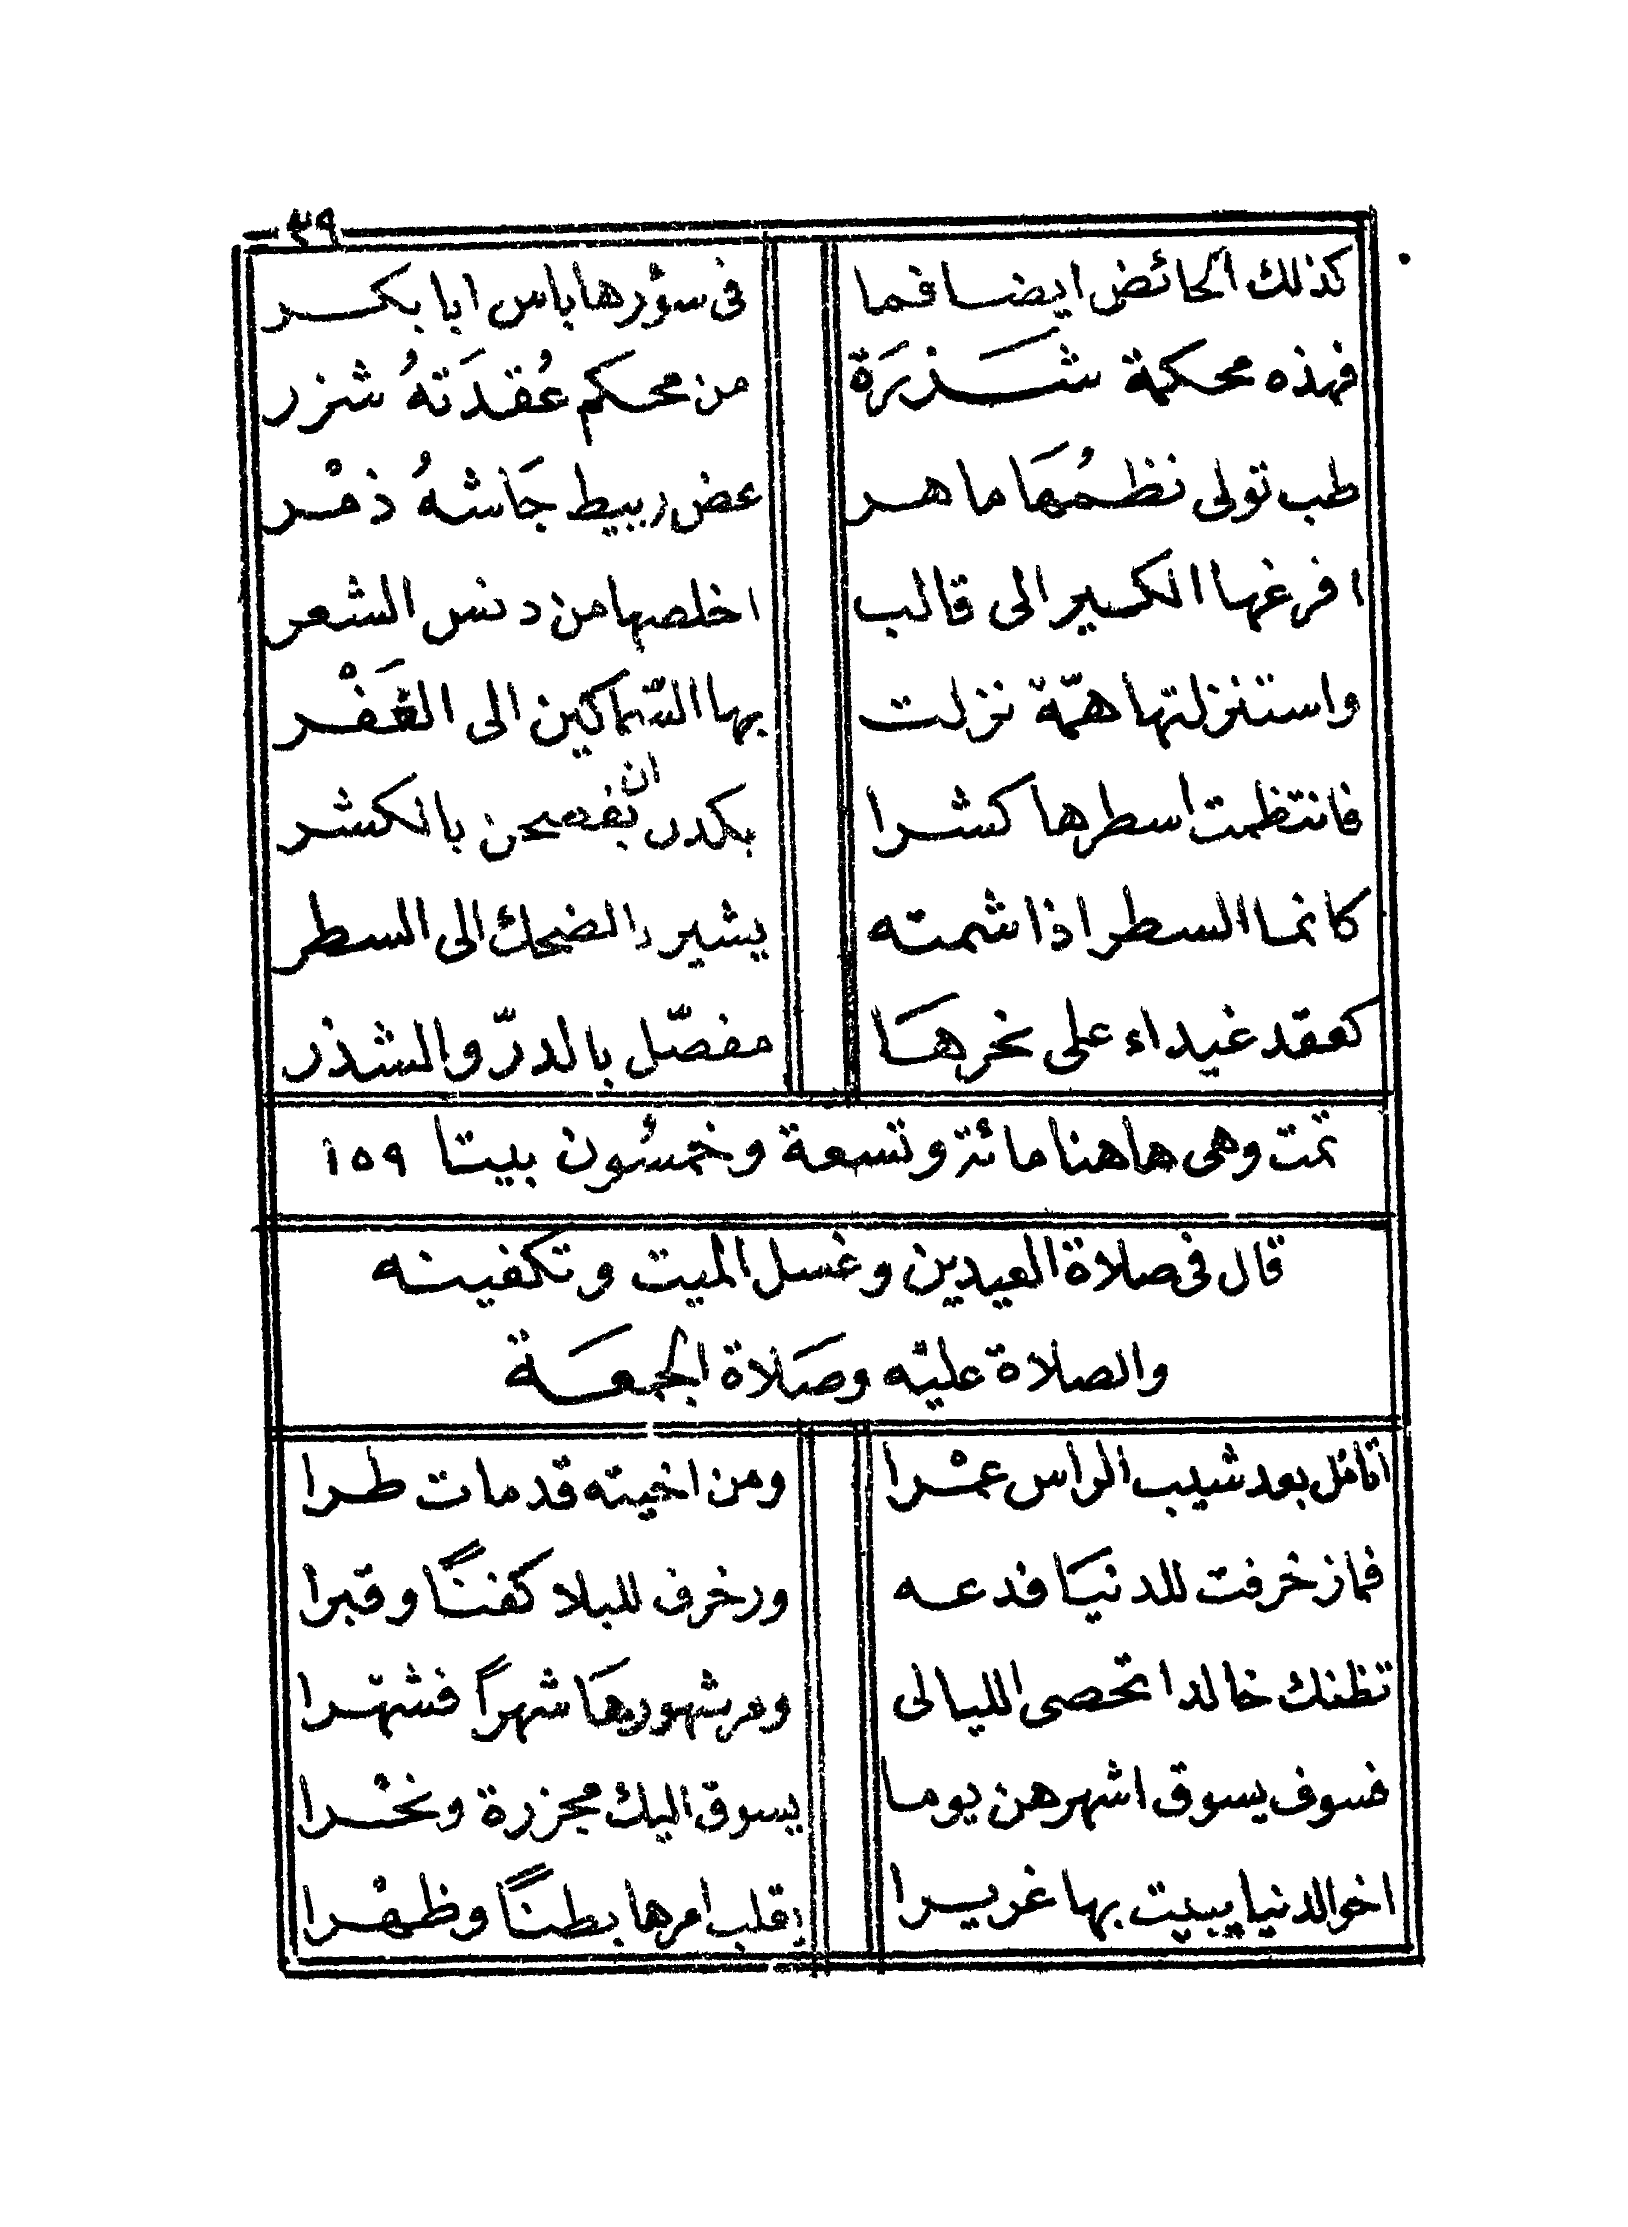 ٣٩
كذلك الحائض ايضا فما في سؤرها باس ابا بكر
فهذه محكمة شذرَة من محكم عُقدَتهُ شزر
طب تولى نظمُهَا ماهر عض ربيط جَاشهُ ذمْر
افرغها الكسير الى قالب اخلصها من دنس الشعر
واستنزلتها همّة نزلت بها السّماكين الى الغَفْر
فانتظمت اسطرها كشرا بكدر ان تفصحن بالكشر
كانما السطر اذا شمته يشير بالضحك الى السطر
كعقد غيداء على نحرهَا مفصّل بالدرّ والشذر
تمت وهي هاهنا مائة وتسعة وخمسُون بيتا ١٥٩
قال في صلاة العيدين وغسل الميت وتكفينه
والصلاة عليْه وصَلاة الجمعَة
اتامل بعد شيب الراس عمْرا ومن اخيته قد مات طرا
فما زخرفت للدنيَا فدعه وزخرف للبلا كفنًا وقبرا
تظنك خالدا تحصى الليالى ومر شهورهَا شهرًا فشهرا
فسوف يسوق اشهرهن يوما يسوق اليك مجزرة ونحْرا
اخو الدنيا يبيت بها غريرا يقلب امرها بطنًا وظهْرا